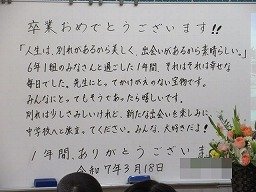 卒業おめでとうございます!!
「人生は、別れがあるから美しく、出会いがあるから素晴らしい。」
6年1組のみなさんと過ごした1年間、それはそれは幸せな
毎日でした。先生にとってかけがえのない宝物です。
みんなにとってもそうであったら嬉しいです。
別れは少しさみしいけれど、新たな出会いを楽しみに
中学校へと旅立ってください。みんな、大好きだよ!
1年間、ありがとうございま
令和7年3月18日